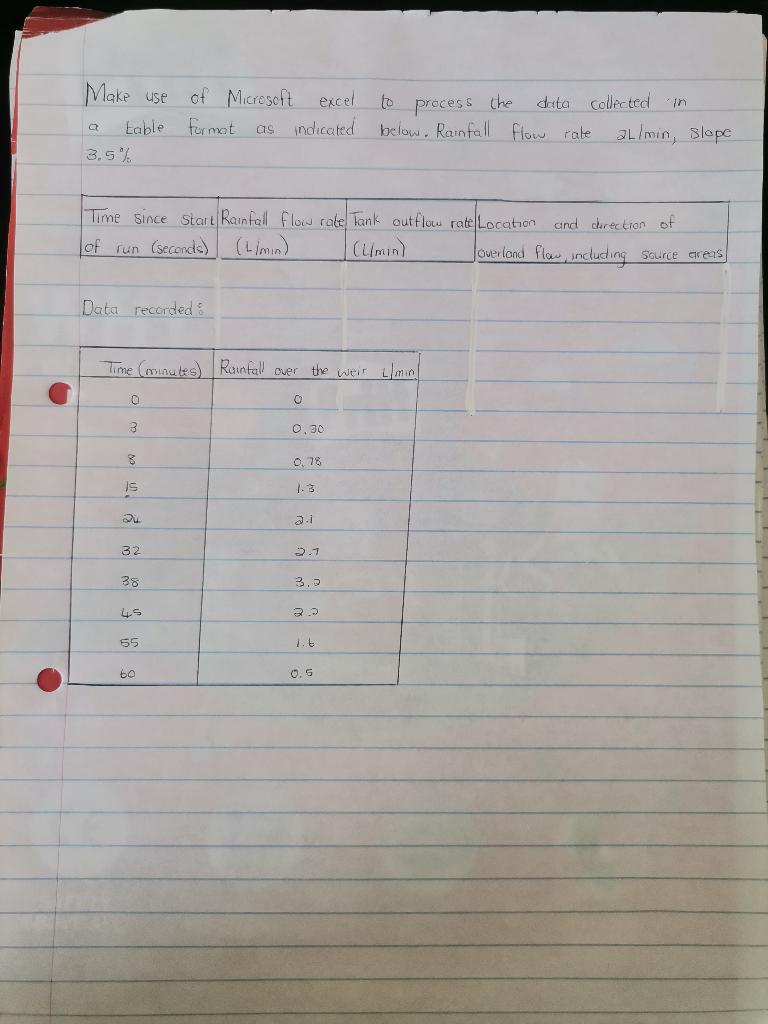 Make use of Microsoft excel to process the data collected in
a table format as indicated below. Rainfall flow rate 2L/min, slope
3.5%
Time since start Rainfall flow rate Tank outflow rate Location and direction of
of run (seconds) (L/min) (L/min) overland flow, including source areas
Data recorded:
Time (minutes) Rainfall over the weir L/min
0 0
3 0.30
8 0.78
15 1.3
24 2.1
32 2.7
38 3.2
45 2.2
55 1.6
60 0.5